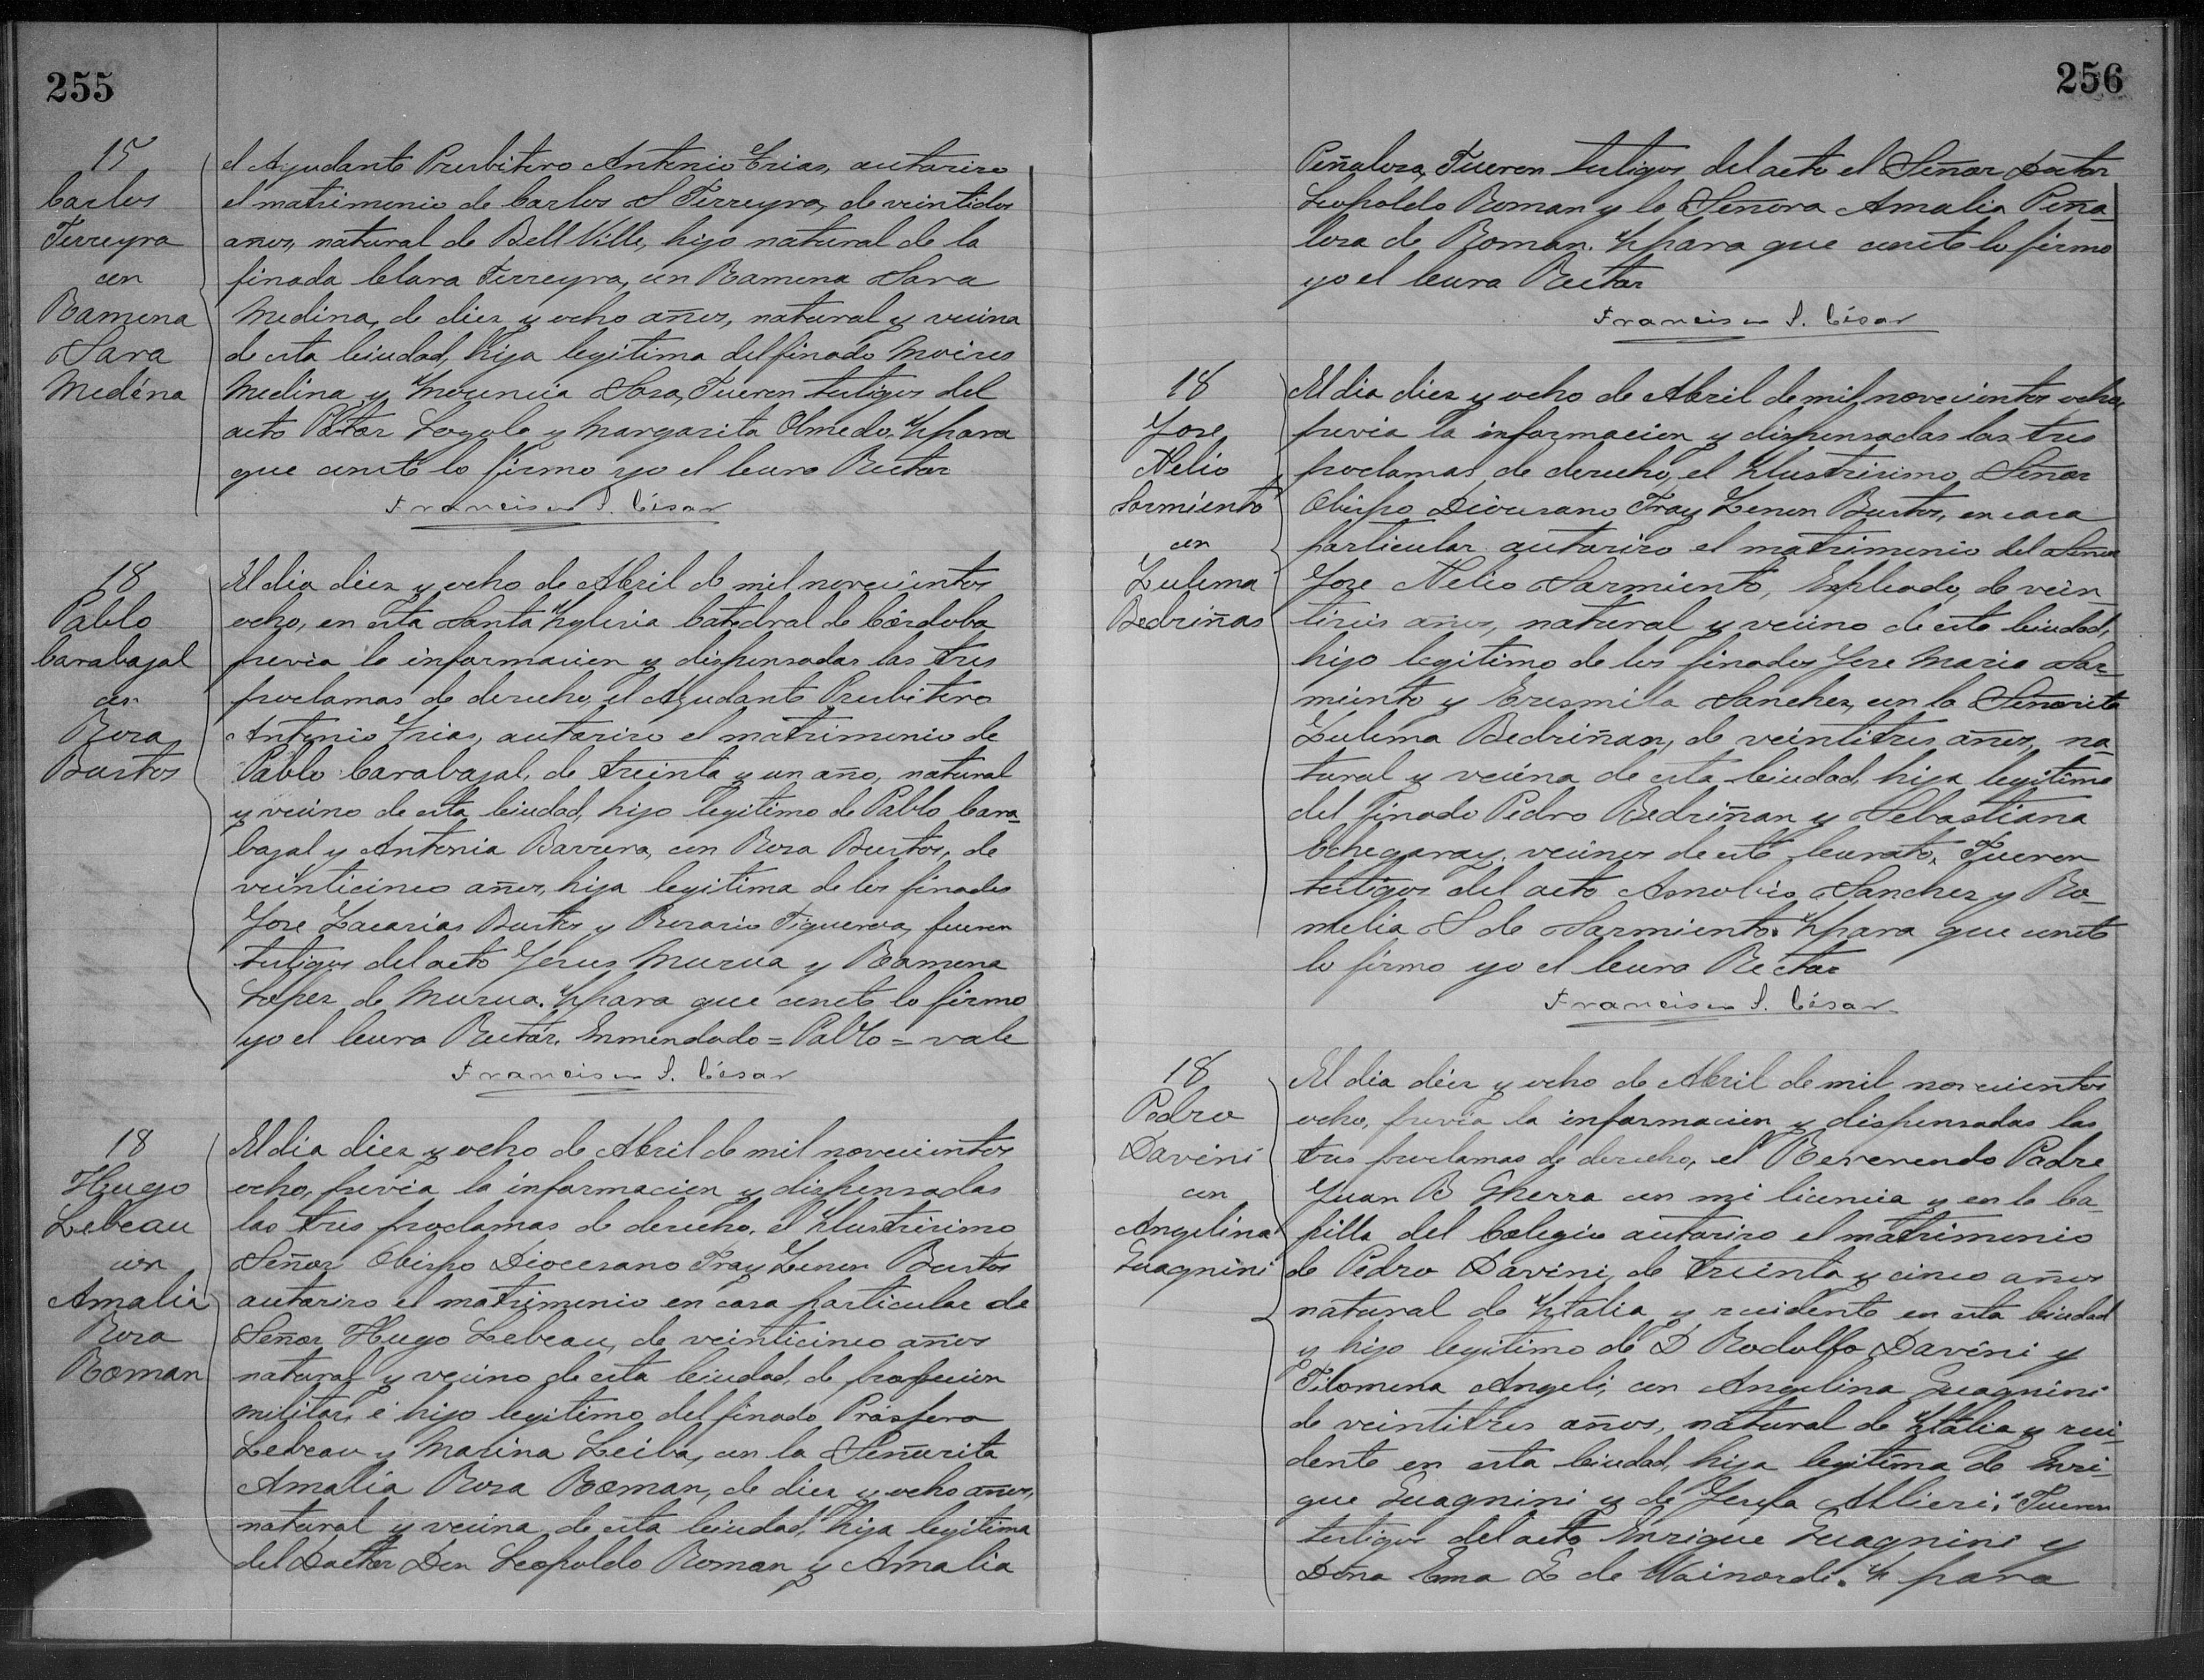 255
15
Carlos
Ferreyra
con
Ramona
Sara
Medina
el Ayudante Presbitero Antonio Frias, autorizo
el matrimonio de Carlos S Ferreyra, de veintidos
años, natural de Bell Ville, hijo natural de la
finada Clara Ferreyra, con Ramona Sara
Medina, de diez y ocho años, natural y vecina
de esta Ciudad, hija legitima del finado Moises
Medina y Sosa, Fueron testigos del
acto Loyola y Margarita Olmedo. Y para
que conste lo firmo yo el Cura Rector
Francisco S. César
18
Pablo
Carabajal
con
Rosa
Bustos
El dia diez y ocho de Abril de mil novecientos
ocho, en esta Santa Yglesia Catedral de Córdoba
previa la informacion y dispensadas las tres
proclamas de derecho, el Ayudante Presbitero
Antonio Frias, autorizo el matrimonio de
Pablo Carabajal, de treinta y un año, natural
y vecino de esta Ciudad, hijo legitimo de Pablo Cara-
bajal y Antonia Barrera, con Rosa Bustos, de
veinticinco años, hija legitima de los finados
Jose Zacarias Bustos y Rosario Figueroa, fueron
testigos del acto Jesus Murua y Ramona
Lopez de Murua. Y para que conste lo firmo
yo el Cura Rector. Enmendado = Pablo = vale
Francisco S. César
18
Hugo
Lebeau
con
Amalia
Rosa
Roman
El dia diez y ocho de Abril de mil novecientos
ocho, previa la informacion y dispensadas
las tres proclamas de derecho, el Ylustrisimo
Señor Obispo Diocesano Fray Zenon Bustos
autorizo el matrimonio en casa particular de
Señor Hugo Lebeau, de veinticinco años
natural y vecino de esta Ciudad, de profesion
militar, é hijo legitimo del finado Próspero
Lebeau y Marina Leiba, con la Señorita
Amalia Rosa Roman, de diez y ocho años,
natural y vecina de esta Ciudad, hija legitima
del Doctor Don Leopoldo Roman y Amalia
256
Peñaloza, Fueron testigos del acto el Señor Doctor
Leopoldo Roman y la Señora Amalia Peña
loza de Roman. Y para que conste lo firmo
yo el Cura Rector
Francisco S. César
18
Jose
Nelio
Sarmiento
con
Zulema
Bedriñas
El dia diez y ocho de Abril de mil novecientos ocho,
previa la informacion y dispensadas las tres
proclamas de derecho, el Ylustrisimo Señor
Obispo Diocesano Fray Zenon Bustos, en casa
particular autorizo el matrimonio del Señor
Jose Nelio Sarmiento, Empleado, de vein-
tiseis años, natural y vecino de esta Ciudad,
hijo legitimo de los finados Jose Maria Sar-
miento y Erusmila Sanchez, con la Señorita
Zulema Bedriñan, de veintitres años, na
tural y vecina de esta Ciudad, hija legitima
del finado Pedro Bedriñan y Sebastiana
Echegaray, vecinos de este Curato. Fueron
testigos del acto Arnobio Sanchez y Ro-
melia S de Sarmiento. Y para que conste
lo firmo yo el Cura Rector
Francisco S. César
18
Pedro
Davini
con
Angelina
Guagnini
El dia diez y ocho de Abril de mil novecientos
ocho, previa la informacion y dispensadas las
tres proclamas de derecho, el Reverendo Padre
Juan B Gherra con mi licencia y en la Ca-
pilla del Colegio autorizo el matrimonio
de Pedro Davini, de treinta y cinco años
natural de Ytalia y residente en esta Ciudad
y hijo legitimo de D Rodolfo Davini y
Filomena Angeli, con Angelina Guagnini
de veintitres años, natural de Ytalia y resi-
dente en esta Ciudad, hija legitima de Enri-
que Guagnini y de Josefa Allieri. Fueron
testigos del acto Enrique Guagnini y
Doña Ema E de Mainardi. Y para